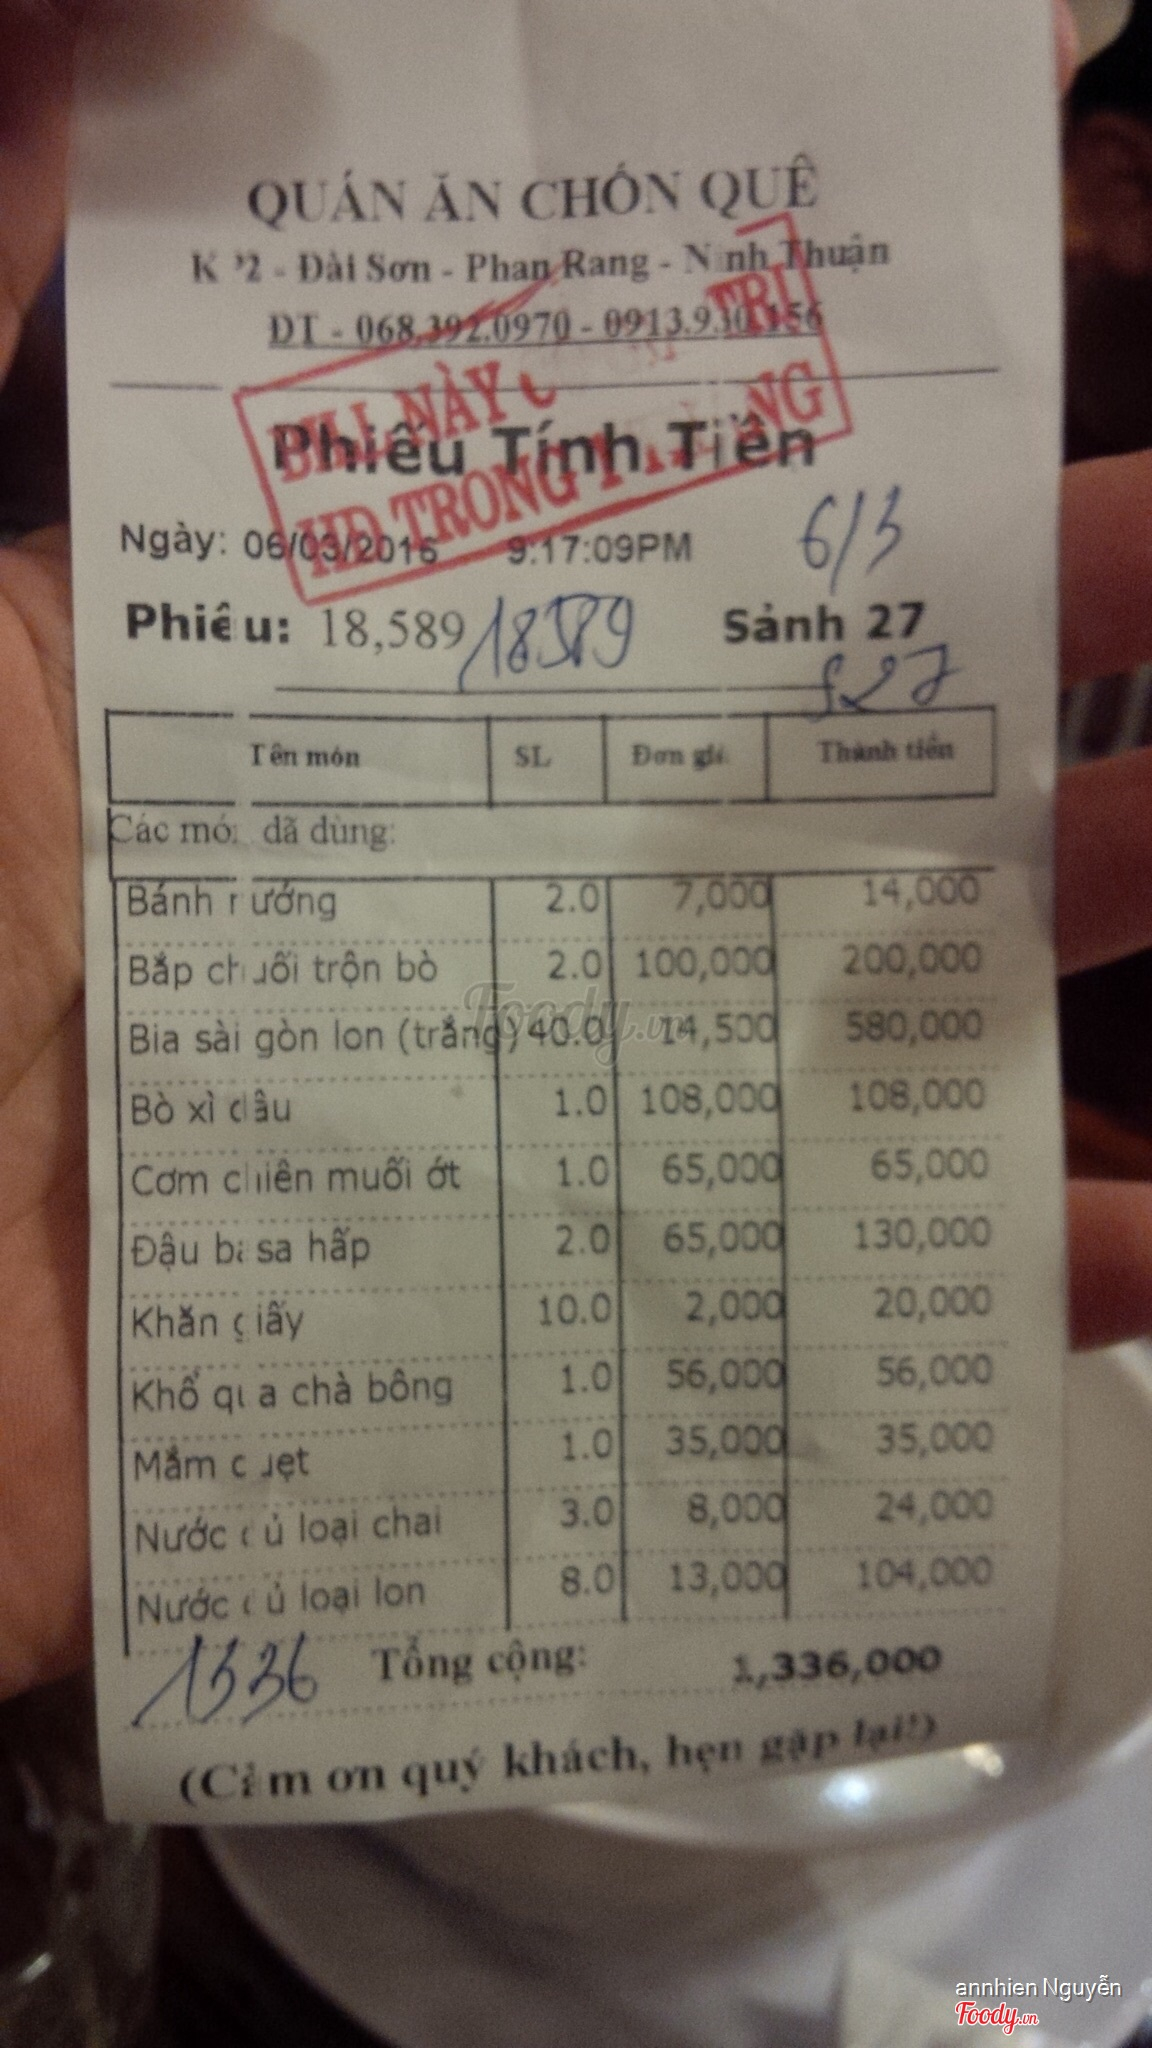 QUÁN ĂN CHỐN QUÊ
K 2 - Đài Sơn - Phan Rang - Ninh Thuận
ĐT - 068.392.0970 - 0913.930.156
BILL NÀY TRỊ
HĐ TRONG
Phiếu Tính Tiền
Ngày: 06/03/2016 9:17:09PM 6/3
Phiếu: 18,589 18589 Sảnh 27
S27
Tên món SL Đơn giá Thành tiền
Các món dã dùng:
Bánh nướng 2.0 7,000 14,000
Bắp chuối trộn bò 2.0 100,000 200,000
Bia sài gòn lon (trắng) 40.0 14,500 580,000
Bò xì dầu 1.0 108,000 108,000
Cơm chiên muối ớt 1.0 65,000 65,000
Đậu ba sa hấp 2.0 65,000 130,000
Khăn giấy 10.0 2,000 20,000
Khổ qua chà bông 1.0 56,000 56,000
Mắm quẹt 1.0 35,000 35,000
Nước củ loại chai 3.0 8,000 24,000
Nước củ loại lon 8.0 13,000 104,000
1336 Tổng cộng: 1,336,000
(Cảm ơn quý khách, hẹn gặp lại!)
Foody.vn
annhien Nguyễn
Foody.vn